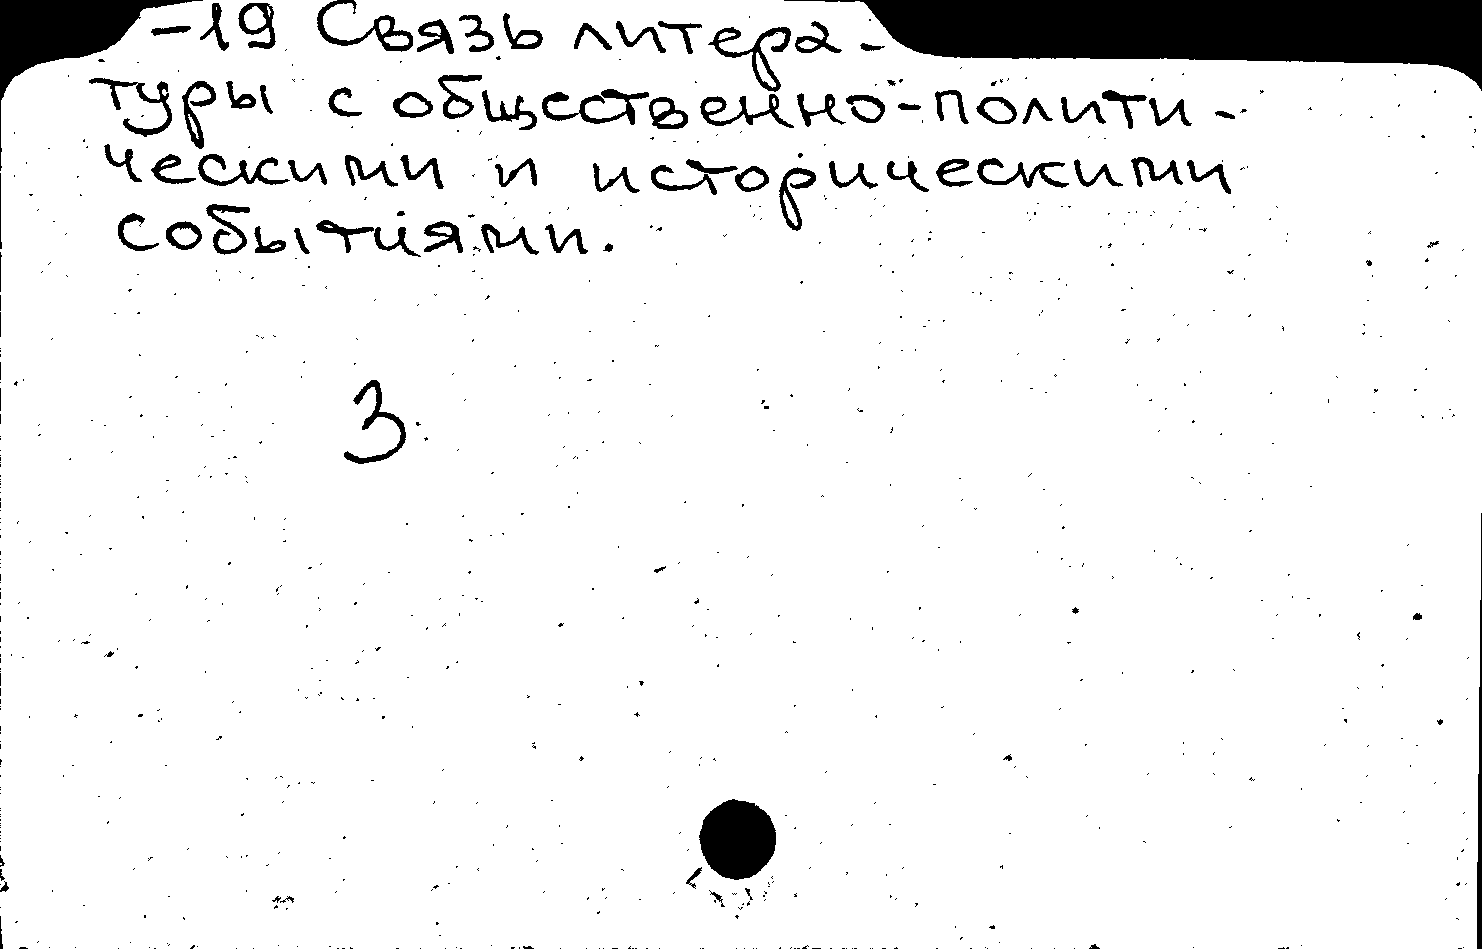 -19 Связь литера-
туры с общественно-полити-
ческими и историческими
событиями.
3